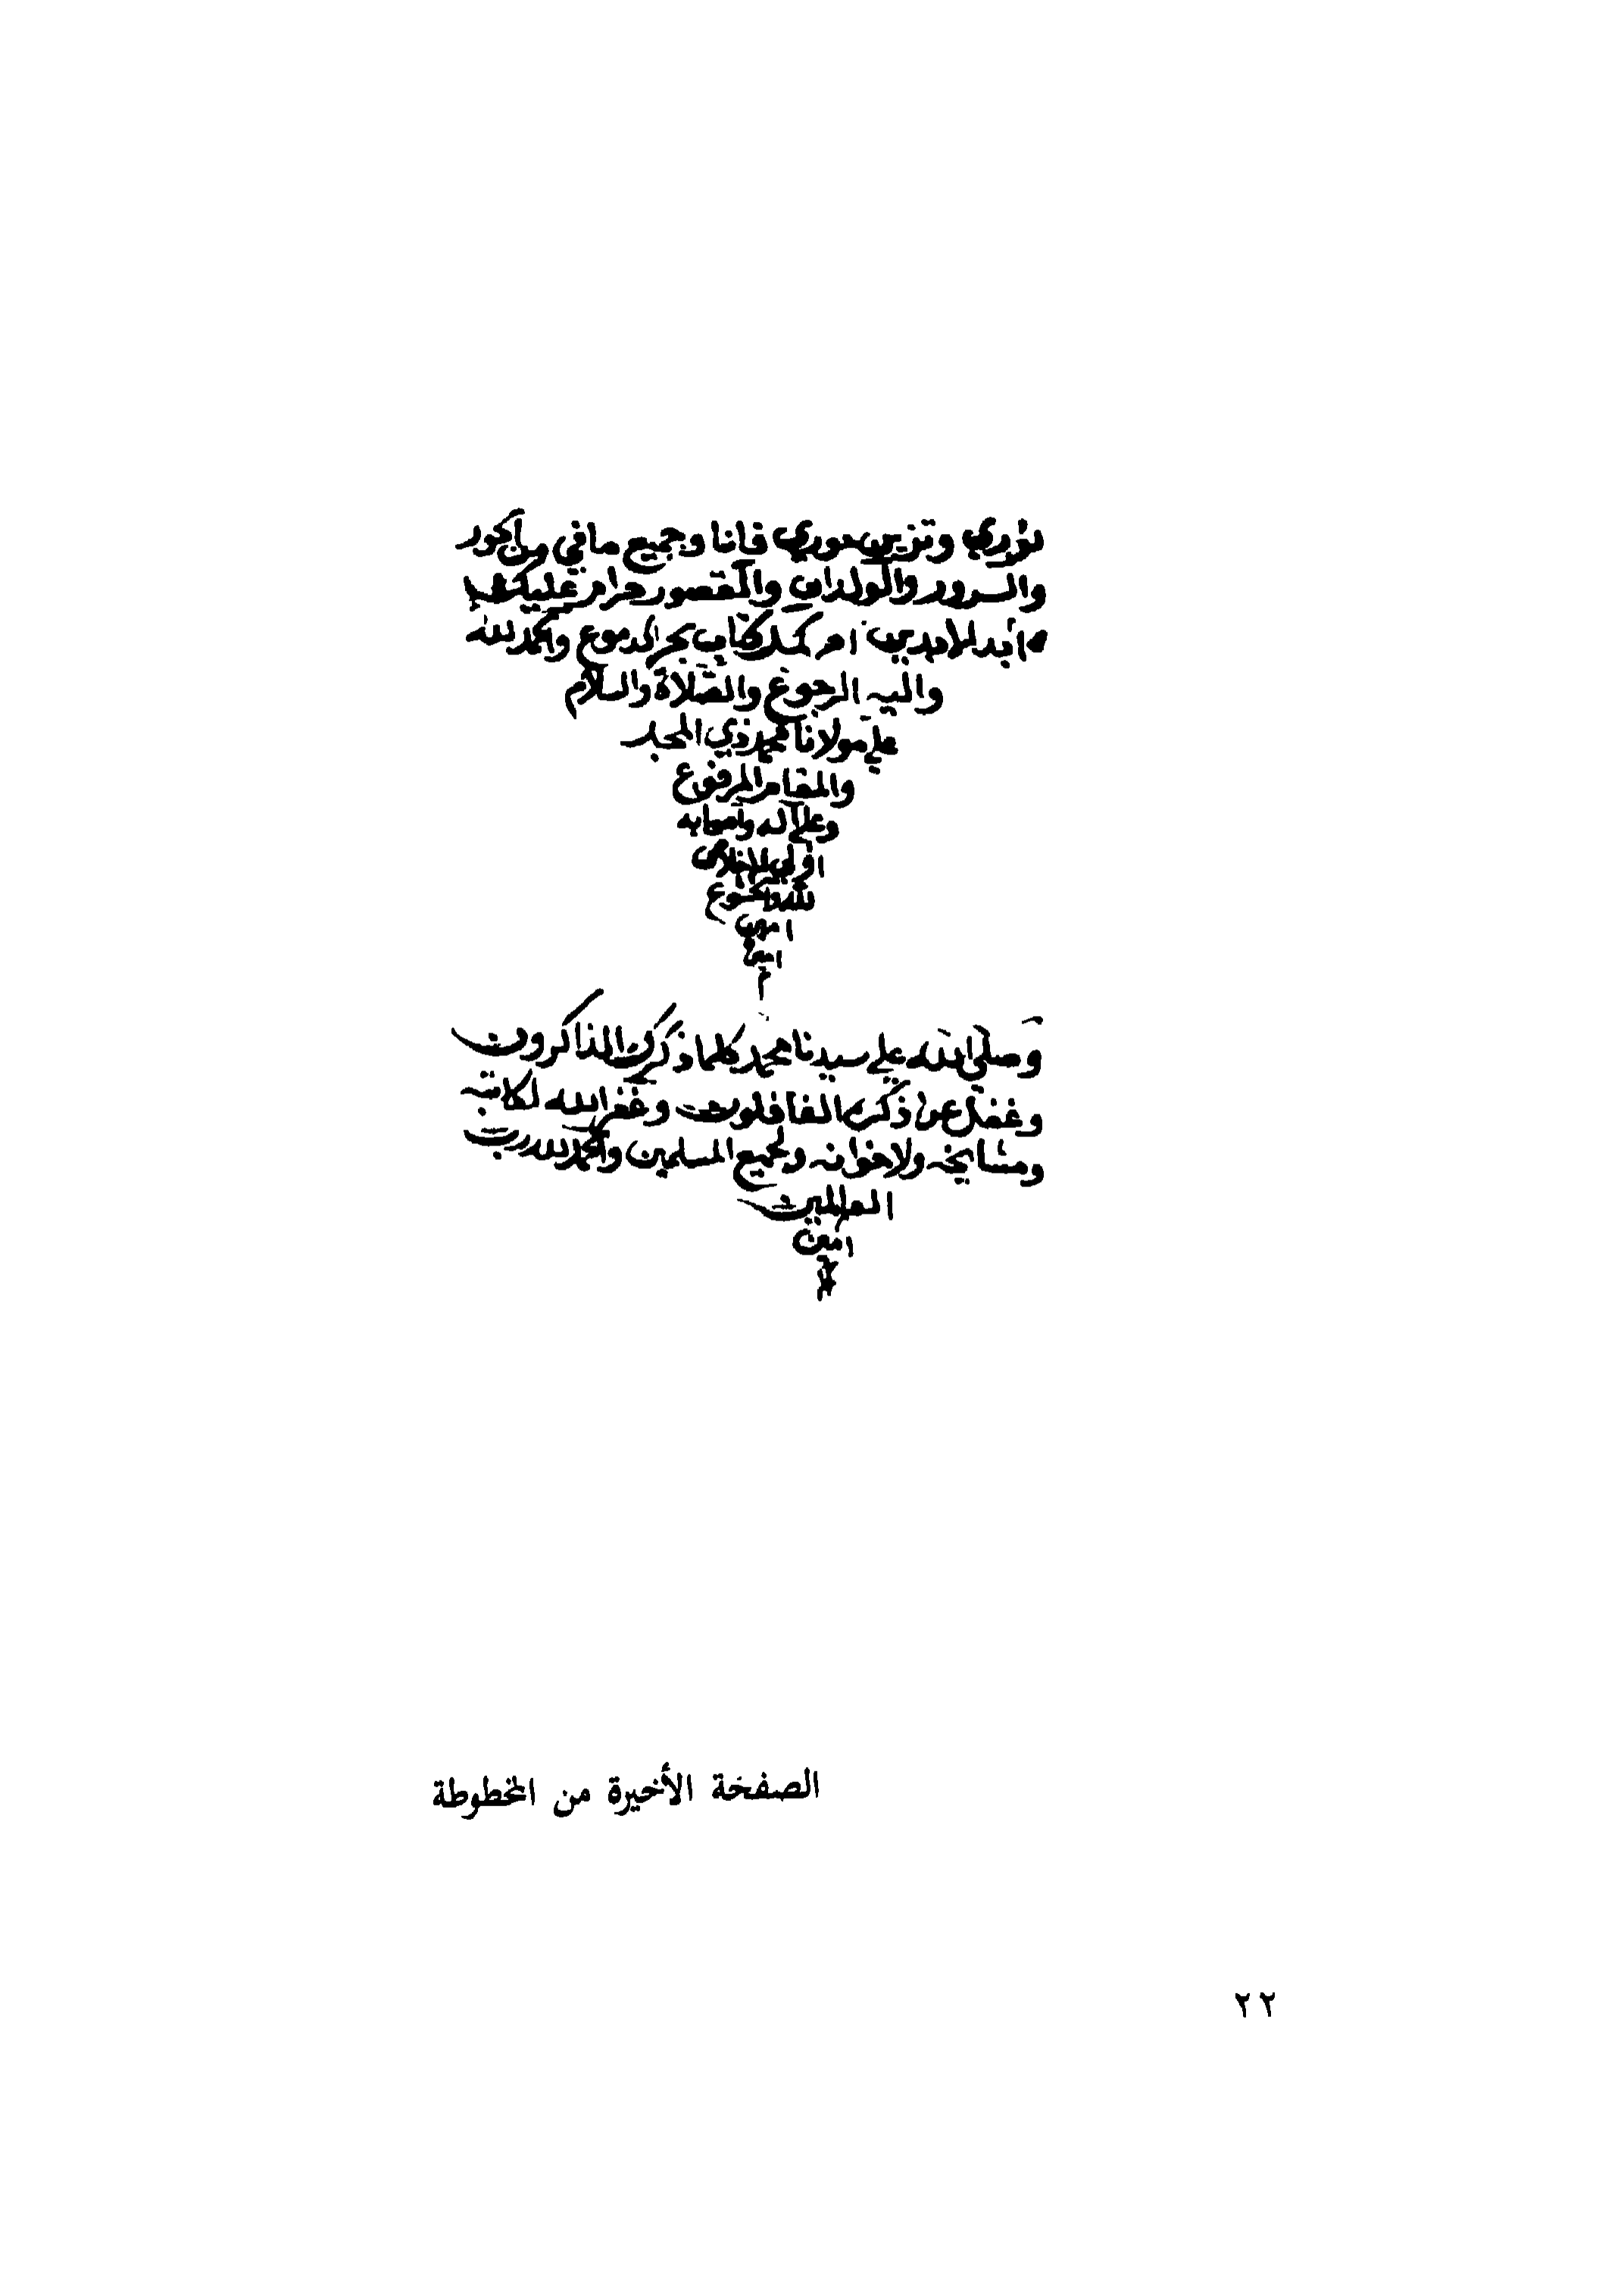 نوري وتزين حوري فانا وجميع ما في من الحور
والسرور والولدان والقصور حرام عليك
ابد الابدين كمل كتاب بحر الدموع والحمد لله
واليه الرجوع والصلاة والسلام
علي مولانا محمد ذي المجد
والمقام المرفوع
وعلي آله واصحابه
اولي الاخلاص
لله والخشوع
امين
امين
م
وصلي الله علي سيدنا محمد كلما ذكرك الذاكرون
وغفل عن ذكره الغافلون وغفر الله لكاتبه
ومشايخه ولاخوانه ولجميع المسلمين والحمد لله رب
العالمين
امين
الصفخة الأخيرة من المخطوطة
٢٢